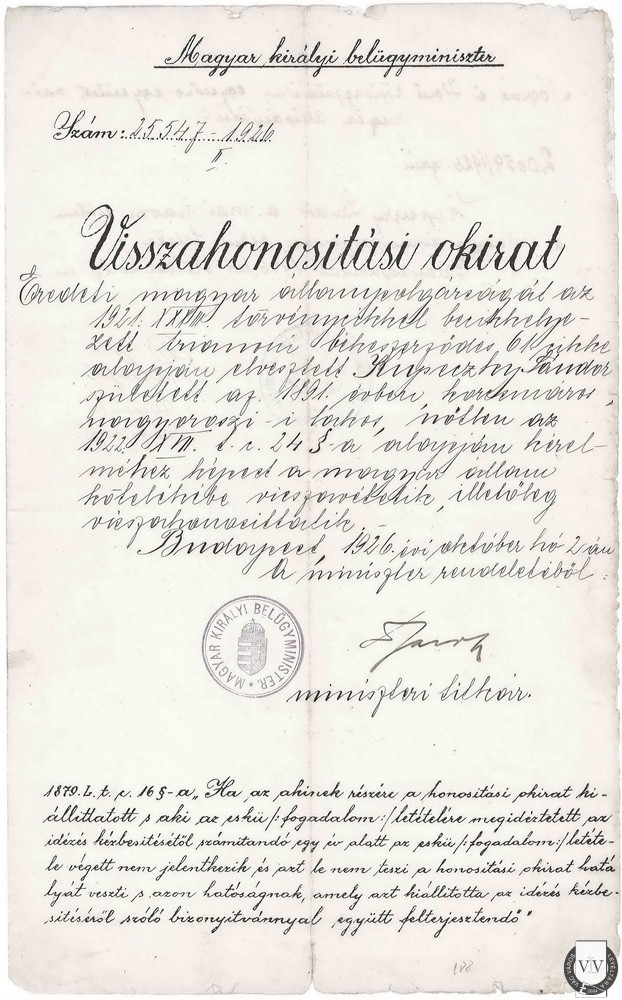 Magyar királyi belügyminiszter
Szám: 25547-1926
II.
Visszahonositási okirat
Eredeti magyar állampolgárságát az
1921. XXXIII. törvénycikkel becikkelye-
zett trianoni békeszerződés 61. cikke
alapján elvesztett Kupeczky Sándor
született az 1891. évben, kocsmáros,
nagyoroszi-i lakos, nőtlen az
1922. XVII. t. c. 24 §-a alapján kérel-
méhez képest a magyar állam
kötelékébe visszavétetik, illetőleg
visszahonosittatik.-
Budapest, 1926. évi október hó 2-án
A miniszter rendeletéből:
MAGYAR KIRÁLYI BELÜGYMINISTER.
miniszteri titkár.
1879. L. t. c. 16 §-a „Ha az akinek részére a honositási okirat ki-
állittatott s aki az eskü /:fogadalom:/ letételére megidéztetett az
idézés kézbesitésétől számitandó egy év alatt az eskü /:fogadalom:/ letéte-
le végett nem jelentkezik és azt le nem teszi a honositási okirat hatá-
lyát veszti s azon hatóságnak, amely azt kiállitotta az idézés kézbe-
sitéséről szóló bizonyitvánnyal együtt felterjesztendő"
188
VÁC VÁROS LEVÉLTÁRA
VVL